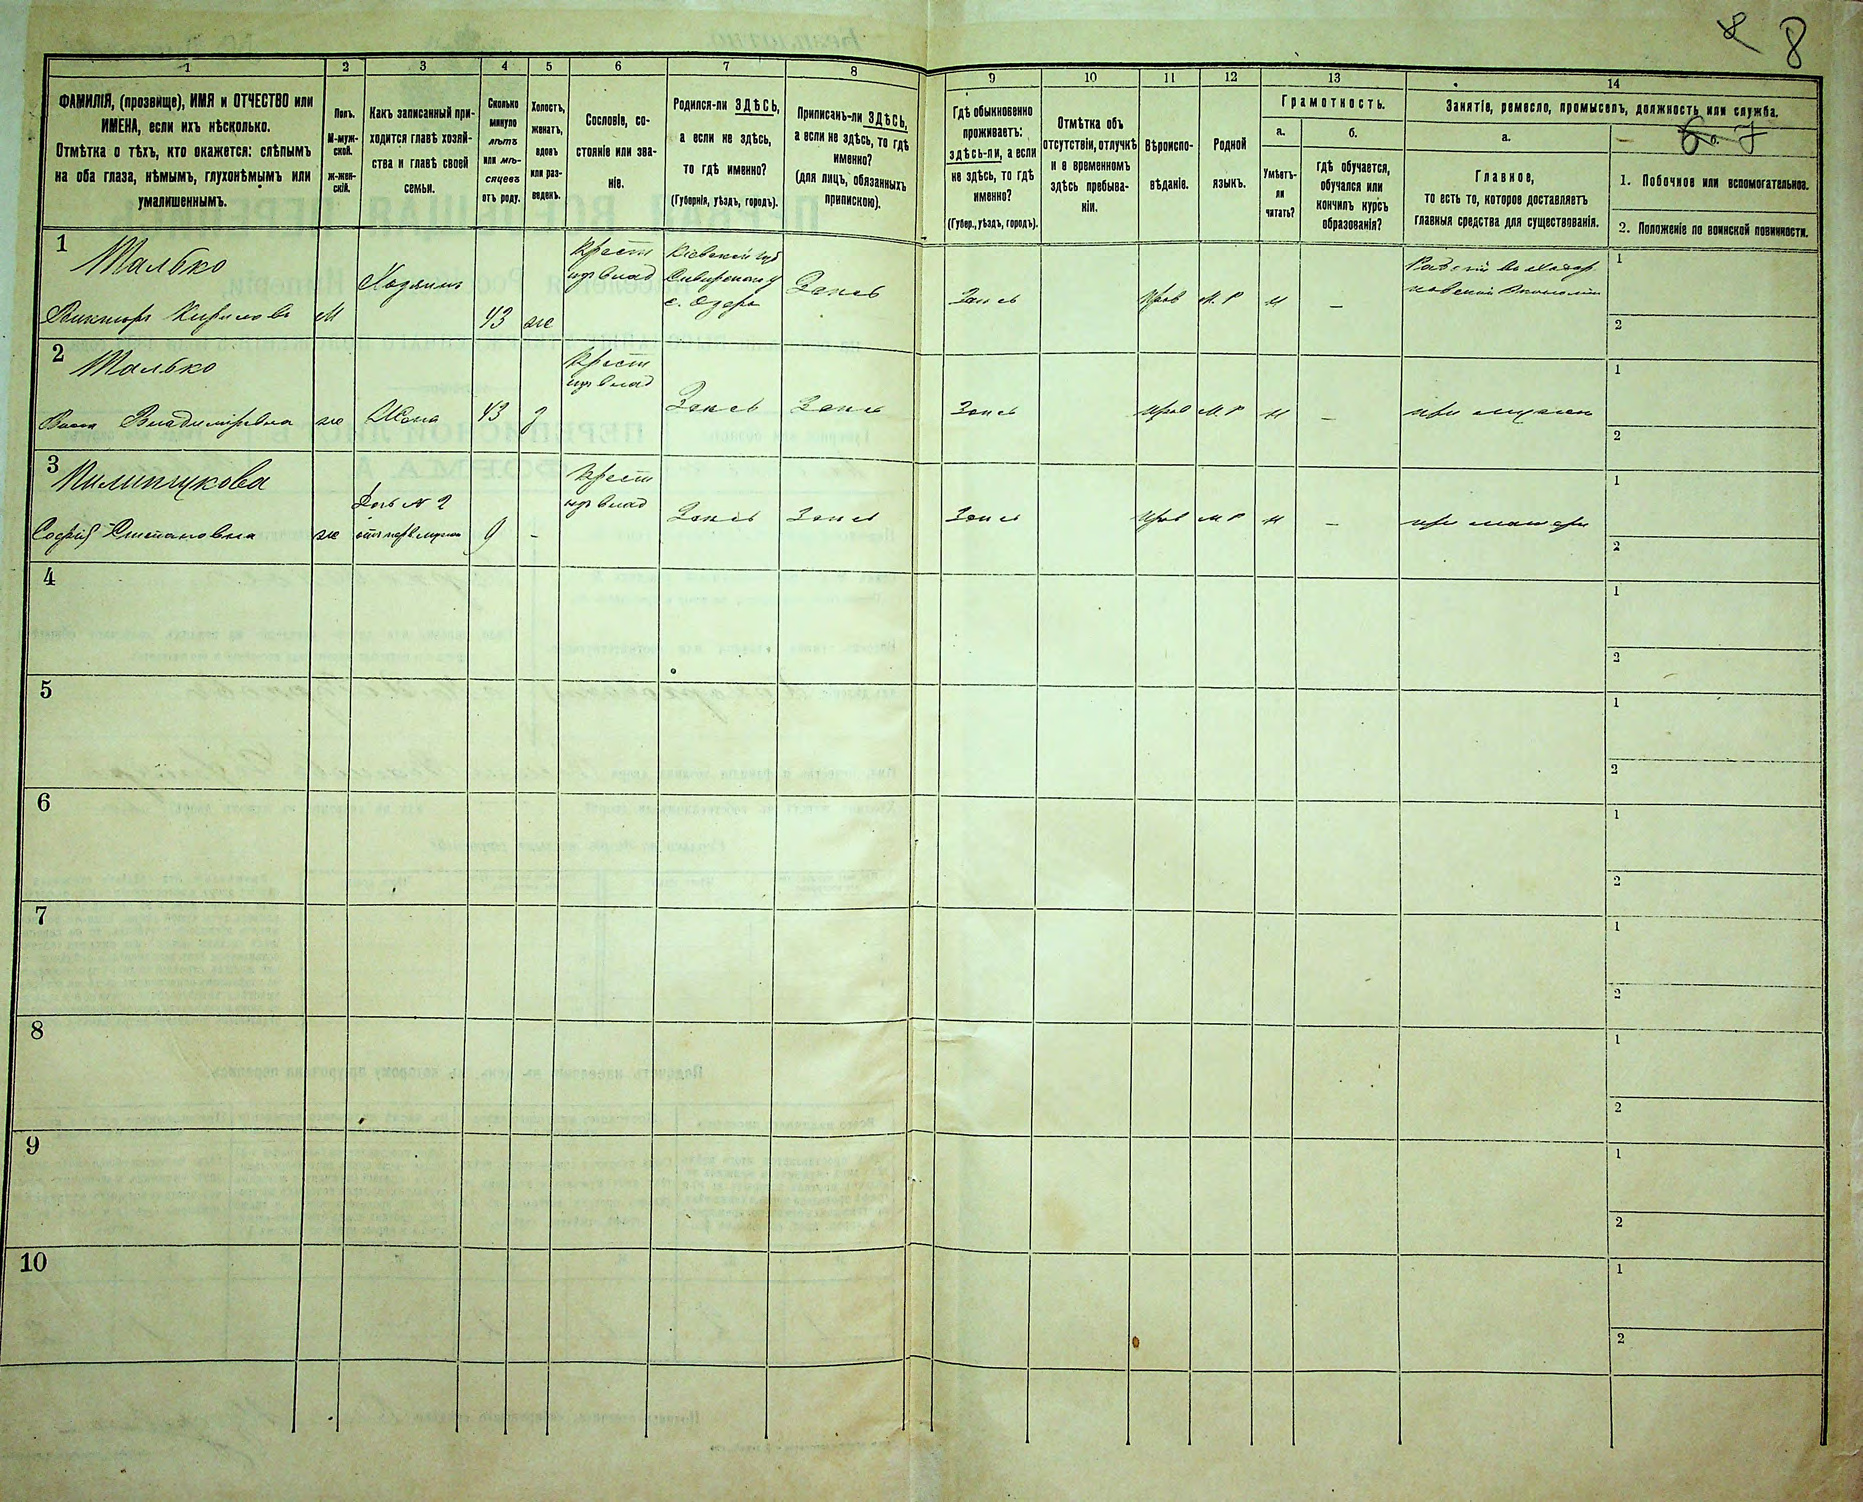 8 8
1 2 3 4 5 6 7 8 9 10 11 12 13 14
ФАМИЛІЯ, (прозвище), ИМЯ и ОТЧЕСТВО или
ИМЕНА, если ихъ нѣсколько.
Отмѣтка о тѣхъ, кто окажется: слѣпымъ
на оба глаза, нѣмымъ, глухонѣмымъ или
умалишеннымъ.
Полъ.
М-муж-
ской.
ж-жен-
скій.
Какъ записанный при-
ходится главѣ хозяй-
ства и главѣ своей
семьи.
Сколько
минуло
лѣтъ
или мѣ-
сяцевъ
отъ роду.
Холостъ,
женатъ,
вдовъ
или раз-
веденъ.
Сословіе, со-
стояніе или зва-
ніе.
Родился-ли ЗДѢСЬ,
а если не здѣсь,
то гдѣ именно?
(Губернія, уѣздъ, городъ).
Приписанъ-ли ЗДѢСЬ,
а если не здѣсь, то гдѣ
именно?
(для лицъ, обязанныхъ
припискою).
Гдѣ обыкновенно
проживаетъ:
здѣсь-ли, а если
не здѣсь, то гдѣ
именно?
(Губер., уѣздъ, городъ).
Отмѣтка объ
отсутствіи, отлучкѣ
и о временномъ
здѣсь пребыва-
ніи.
Вѣроиспо-
вѣданіе.
Родной
языкъ.
Грамотность.
а.
Умѣетъ-
ли
читать?
б.
Гдѣ обучается,
обучался или
кончилъ курсъ
образованія?
Занятіе, ремесло, промыселъ, должность или служба.
а.
Главное,
то есть то, которое доставляетъ
главныя средства для существованія.
б. 7
1. Побочное или вспомогательное.
2. Положеніе по воинской повинности.
1
Шалько
Викторъ Кириловъ
М
Хозяинъ
43
же
Крест
изъ влад
Кіевской губ
с. Озера
Здесь
Здесь
Прав
М. Р
н
—
1
2
2
Шалько
Владиміровна
же
Жена
43
з
Крест
изъ влад
Здесь
Здесь
Здесь
Прав
М. Р
н
—
при мужѣ
1
2
3
Пилипчукова
Софія Степановна
же
Дочь № 2
9
-
Крест
изъ влад
Здесь
Здесь
Здесь
Прав
М Р
н
—
при матери
1
2
4
1
2
5
1
2
6
1
2
7
1
2
8
1
2
9
1
2
10
1
2